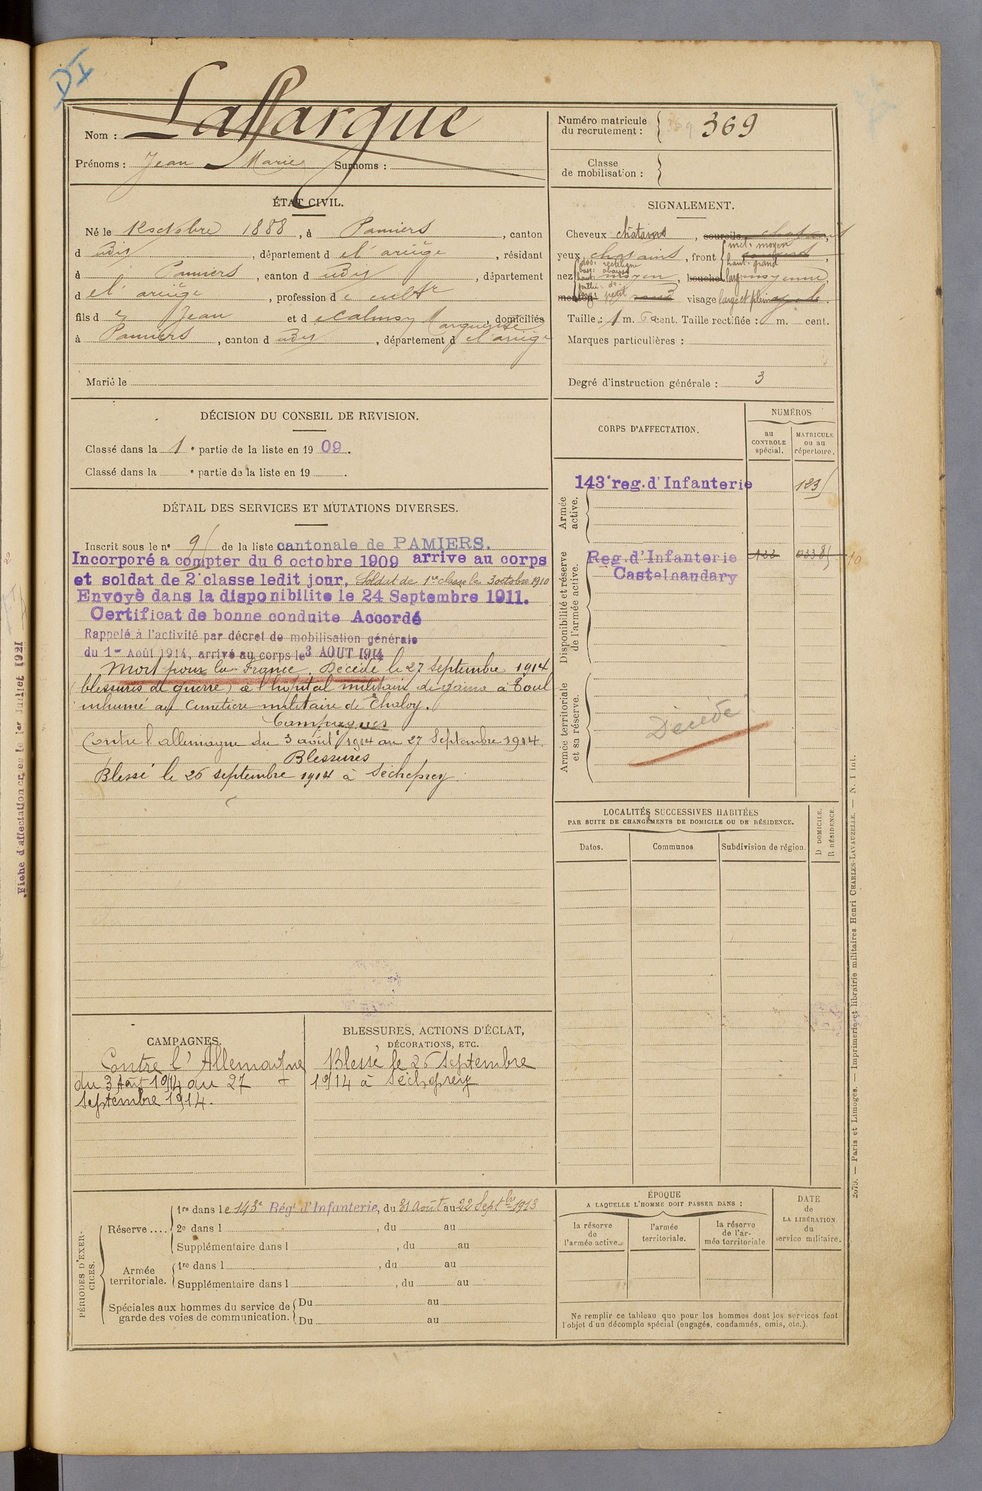 Nom : Laffargue
Prénoms : Jean Marie Surnoms :
Numéro matricule
du recrutement : 369
Classe
de mobilisation :
ÉTAT CIVIL.
Né le 12 octobre 1888, à Pamiers, canton
d udit, département d e l'ariège, résidant
à Pamiers, canton d udit, département
d e l'ariège, profession d e cultr
fils d e Jean et d e Calmsy Marguerite, domiciliés
à Pamiers, canton d udit, département d e l'ariège
Marié le
SIGNALEMENT.
Cheveux châtains, sourcils châtains
yeux châtains, front incl. moyen
haut. grand
nez dos. rectiligne
base. abaissé
haut. moyen, bouche larg. moyenne,
menton petit rond visage large et plein
Taille : 1 m. cent. Taille rectifiée : m. cent.
Marques particulières :
Degré d'instruction générale : 3
DÉCISION DU CONSEIL DE REVISION.
Classé dans la 1e partie de la liste en 1909.
Classé dans la e partie de la liste en 19 .
CORPS D'AFFECTATION.
NUMÉROS
au
CONTROLE
spécial.
MATRICULE
ou au
répertoire.
Armée
active.
143e reg. d'Infanterie
Disponibilité et réserve
de l'armée active.
Reg. d'Infanterie
Castelnaudary
Armée territoriale
et sa réserve.
Décédé
DÉTAIL DES SERVICES ET MUTATIONS DIVERSES.
Inscrit sous le no 9 de la liste cantonale de PAMIERS.
Incorporé a compter du 6 octobre 1909 arrive au corps
et soldat de 2e classe ledit jour, Soldat de 1re classe le 3 octobre 1910
Envoyè dans la disponibilite le 24 Septembre 1911.
Certificat de bonne conduite Accordé
Rappelé à l'activité par décret de mobilisation générale
du 1er Août 1914, arrivé au corps le 3 AOUT 1914
Mort pour la France. Décédé le 27 septembre 1914
(blessures de guerre) à l'hôpital militaire à Toul
inhumé au cimetière militaire de Choloy.
Campagnes
Contre l'allemagne du 3 août 1914 au 27 Septembre 1914.
Blessures
Blessé le 26 septembre 1914 à Seicheprey.
LOCALITÉS SUCCESSIVES HABITÉES
PAR SUITE DE CHANGEMENTS DE DOMICILE OU DE RÉSIDENCE.
Dates.
Communes
Subdivision de région.
D. DOMICILE.
R. RÉSIDENCE.
CAMPAGNES.
Contre l'Allemagne
du 3 Août 1914 au 27
septembre 1914.
BLESSURES, ACTIONS D'ÉCLAT,
DÉCORATIONS, ETC.
Blessé le 26 septembre
1914 à Seicheprey
PÉRIODES D'EXERCICES.
Réserve ....
1re dans le 143e Régt d'Infanterie, du 31 Août au 22 Septbre 1913
2e dans l , du au
Supplémentaire dans l , du au
Armée
territoriale.
1re dans l , du au
Supplémentaire dans l , du au
Spéciales aux hommes du service de
garde des voies de communication.
Du au
Du au
ÉPOQUE
A LAQUELLE L'HOMME DOIT PASSER DANS :
la réserve
de
l'armée active.
l'armée
territoriale.
la réserve
de l'ar-
mée territoriale
DATE
de
LA LIBÉRATION
du
service militaire.
Ne remplir ce tableau que pour les hommes dont les services font
l'objet d'un décompte spécial (engagés, condamnés, omis, etc.).
2079. — Paris et Limoges. — Imprimerie et librairie militaires Henri CHARLES-LAVAUZELLE. — N. 1 int.